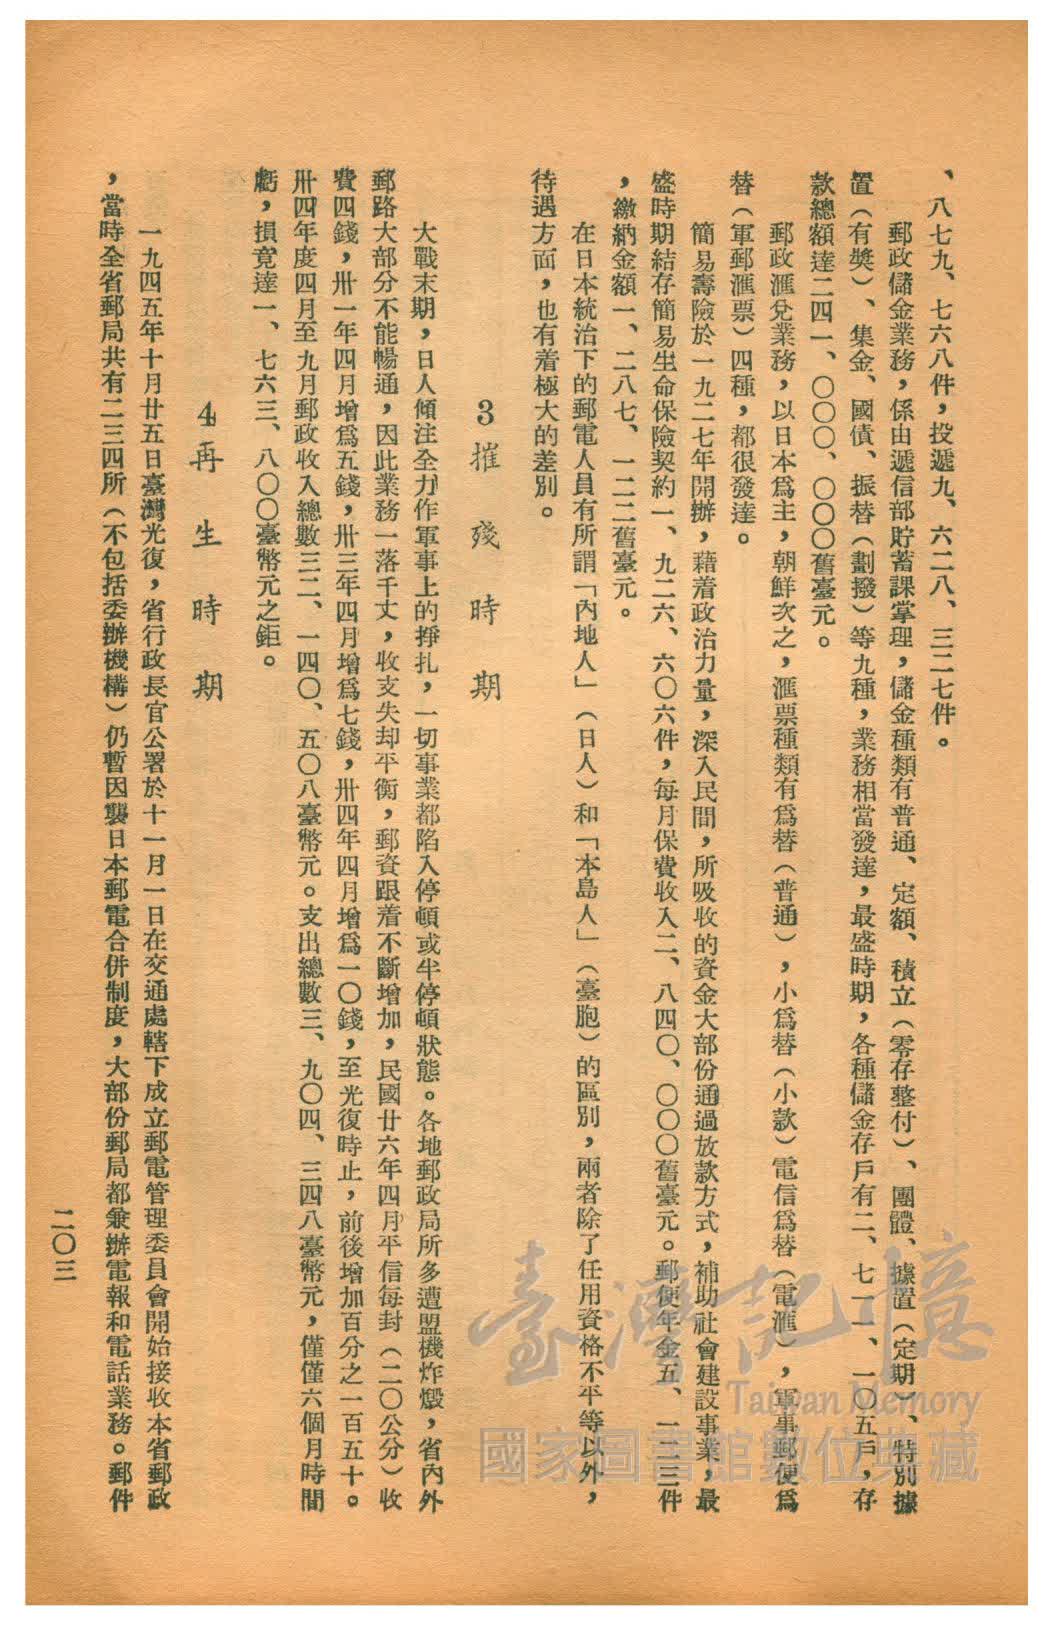 、八七九、七六八件，投遞九、六二八、三二七件。
郵政儲金業務，係由遞信部貯蓄課掌理，儲金種類有普通、定額、積立（零存整付）、團體、據置（定期）、特別據
置（有獎）、集金、國債、振替（劃撥）等九種，業務相當發達，最盛時期，各種儲金存戶有二、七一一、一〇五戶，存
款總額達二四一、〇〇〇、〇〇〇舊臺元。
郵政滙兌業務，以日本爲主，朝鮮次之，滙票種類有爲替（普通），小爲替（小款）電信爲替（電滙），軍事郵便爲
替（軍郵滙票）四種，都很發達。
簡易壽險於一九二七年開辦，藉着政治力量，深入民間，所吸收的資金大部份通過放款方式，補助社會建設事業，最
盛時期結存簡易生命保險契約一、九二六、六〇六件，每月保費收入二、八四〇、〇〇〇舊臺元。郵便年金五、一三三件
，繳納金額一、二八七、一二二舊臺元。
在日本統治下的郵電人員有所謂「內地人」（日人）和「本島人」（臺胞）的區別，兩者除了任用資格不平等以外，
待遇方面，也有着極大的差別。
3 摧殘時期
大戰末期，日人傾注全力作軍事上的掙扎，一切事業都陷入停頓或半停頓狀態。各地郵政局所多遭盟機炸燬，省內外
郵路大部分不能暢通，因此業務一落千丈，收支失却平衡，郵資跟着不斷增加，民國廿六年四月平信每封（二〇公分）收
費四錢，卅一年四月增爲五錢，卅三年四月增爲七錢，卅四年四月增爲一〇錢，至光復時止，前後增加百分之一百五十。
卅四年度四月至九月郵政收入總數三二、一四〇、五〇八臺幣元。支出總數三、九〇四、三四八臺幣元，僅僅六個月時間
虧，損竟達一、七六三、八〇〇臺幣元之鉅。
4 再生時期
一九四五年十月廿五日臺灣光復，省行政長官公署於十一月一日在交通處轄下成立郵電管理委員會開始接收本省郵政
，當時全省郵局共有二三四所（不包括委辦機構）仍暫因襲日本郵電合併制度，大部份郵局都兼辦電報和電話業務。郵件
二〇三
臺灣記憶
Taiwan Memory
國家圖書館數位典藏